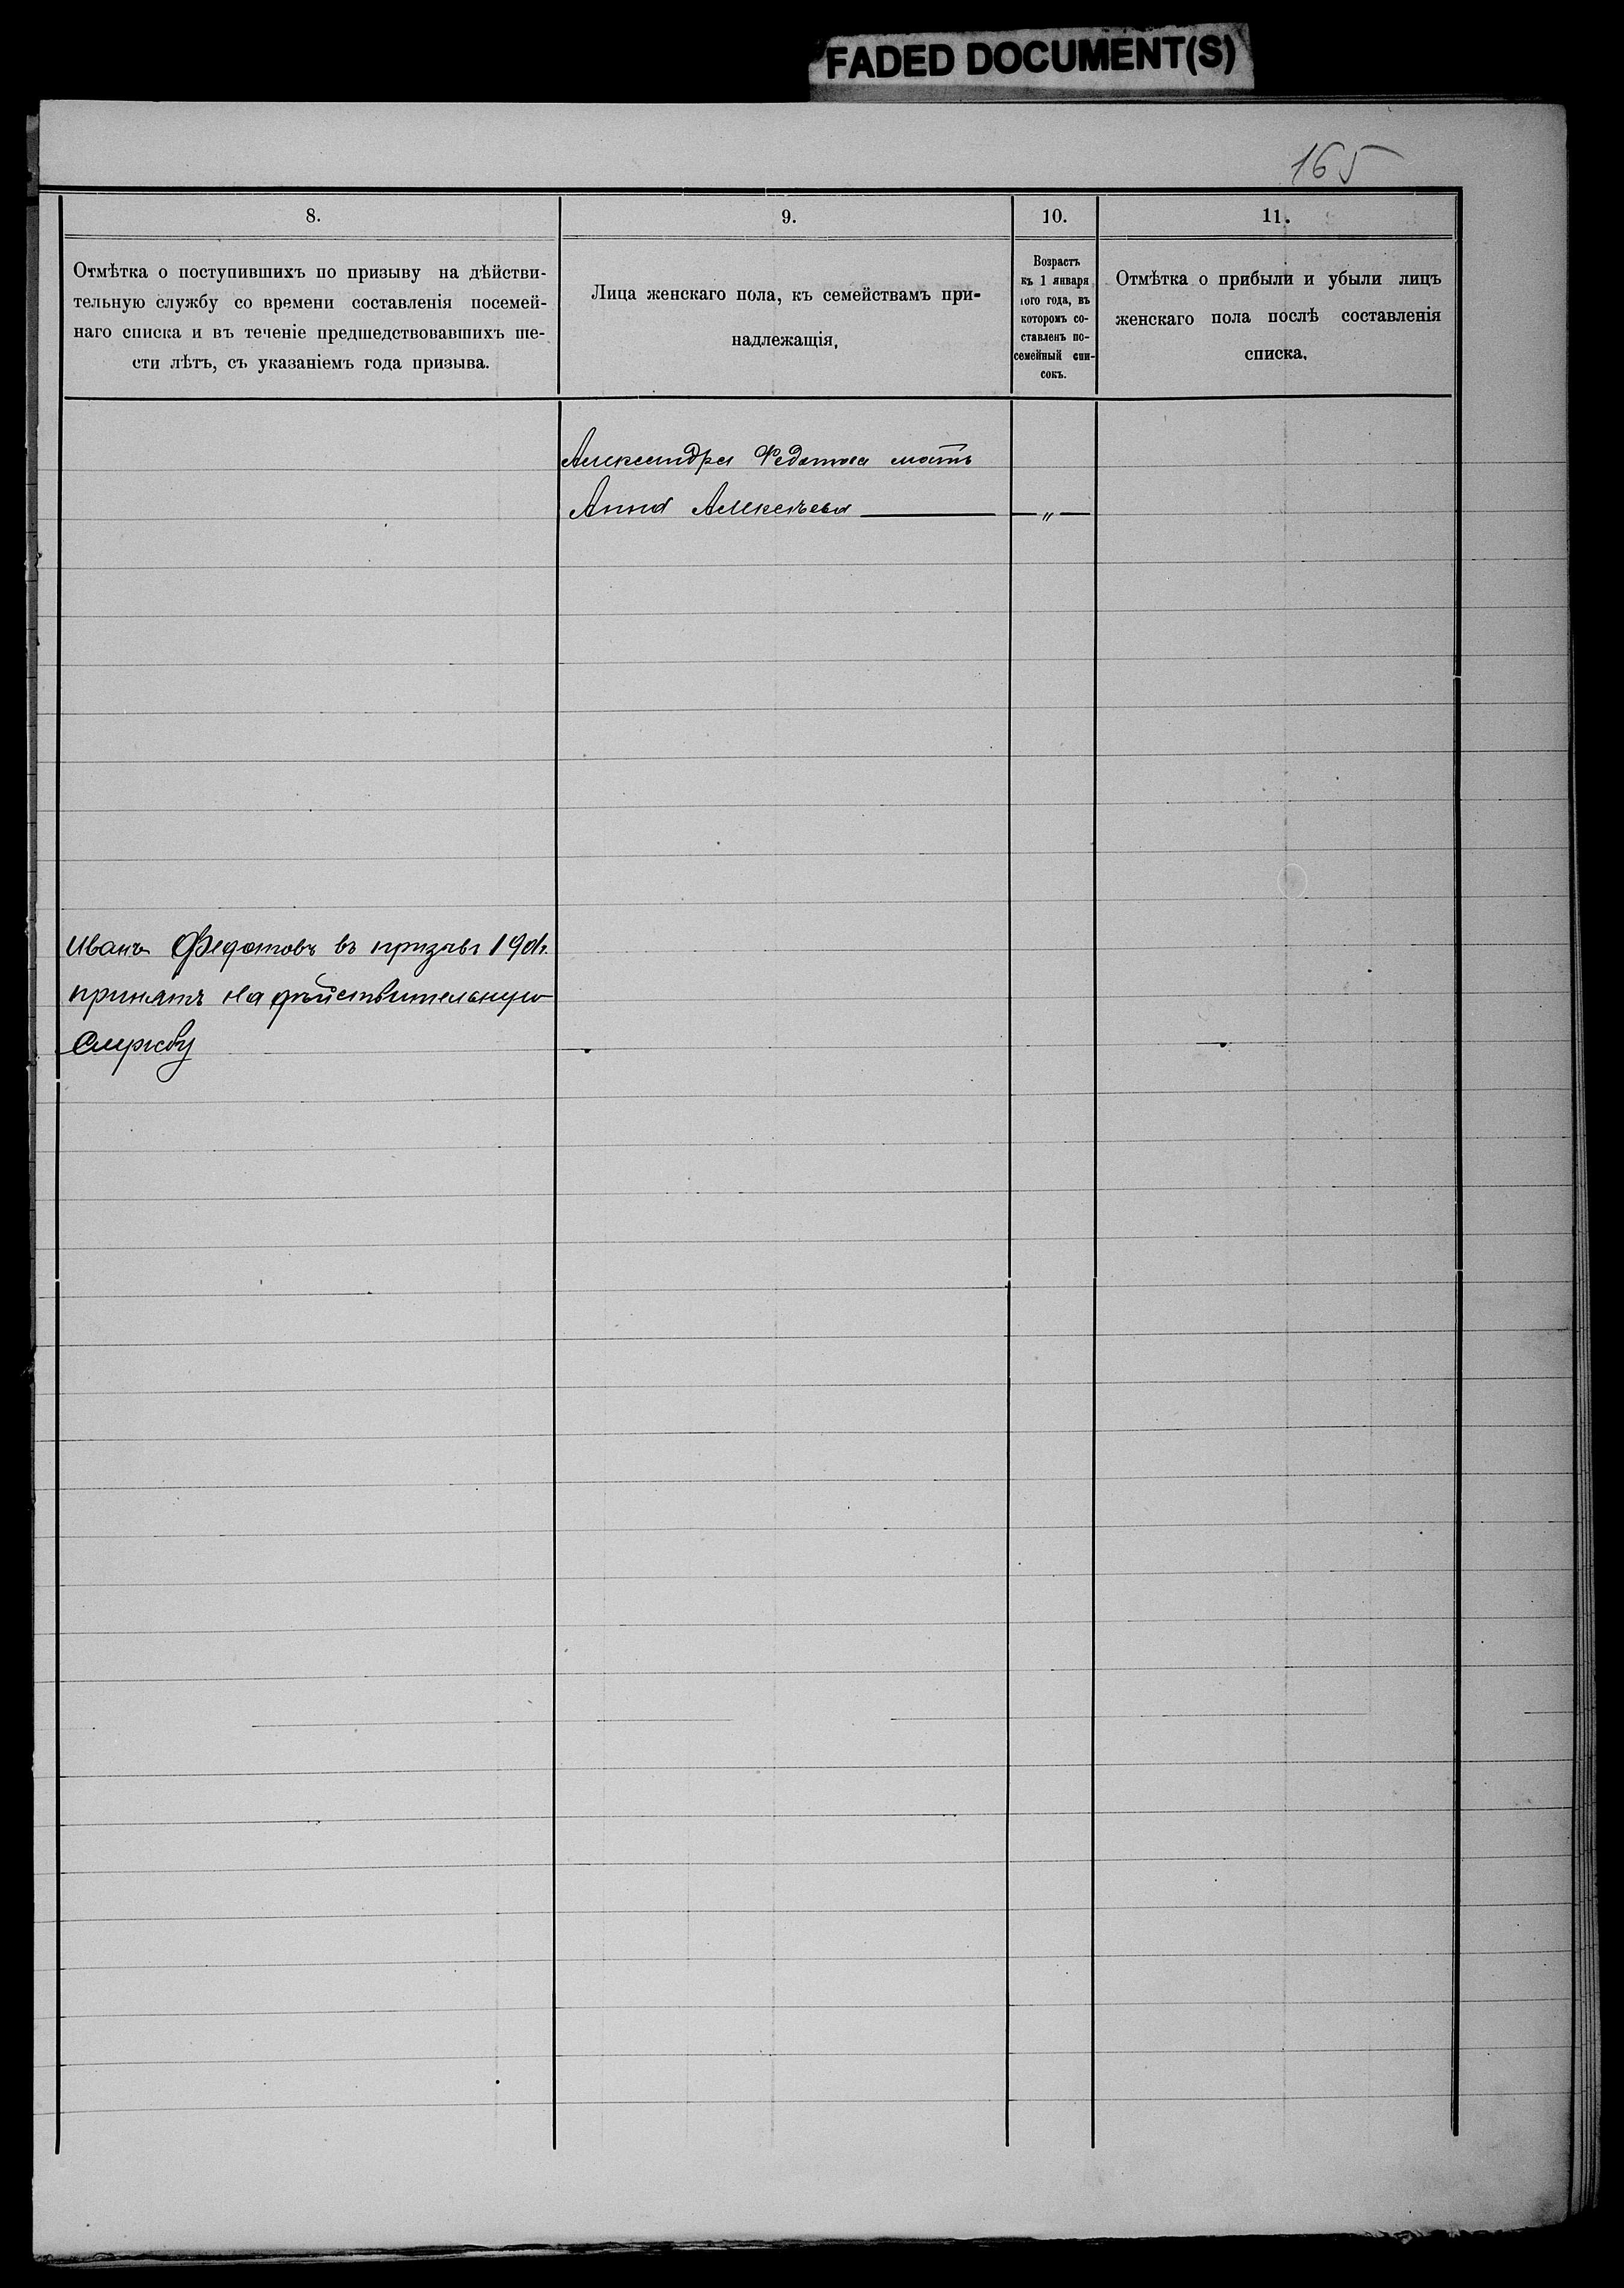 FADED DOCUMENT(S)
165
8.
9.
10.
11.
Отмѣтка о поступившихъ по призыву на дѣйстви-
тельную службу со времени составленія посемей-
наго списка и въ теченіе предшедствовавшихъ ше-
сти лѣтъ, съ указаніемъ года призыва.
Лица женскаго пола, къ семействамъ при-
надлежащія,
Возрастъ
къ 1 января
того года, въ
которомъ со-
ставленъ по-
семейный спи-
сокъ.
Отмѣтка о прибыли и убыли лицъ
женскаго пола послѣ составленія
списка.
Александра Федотова мать
Анна Алексѣева — „ —
Иванъ Федотовъ въ призывъ 1901г.
принятъ на дѣйствительную
службу